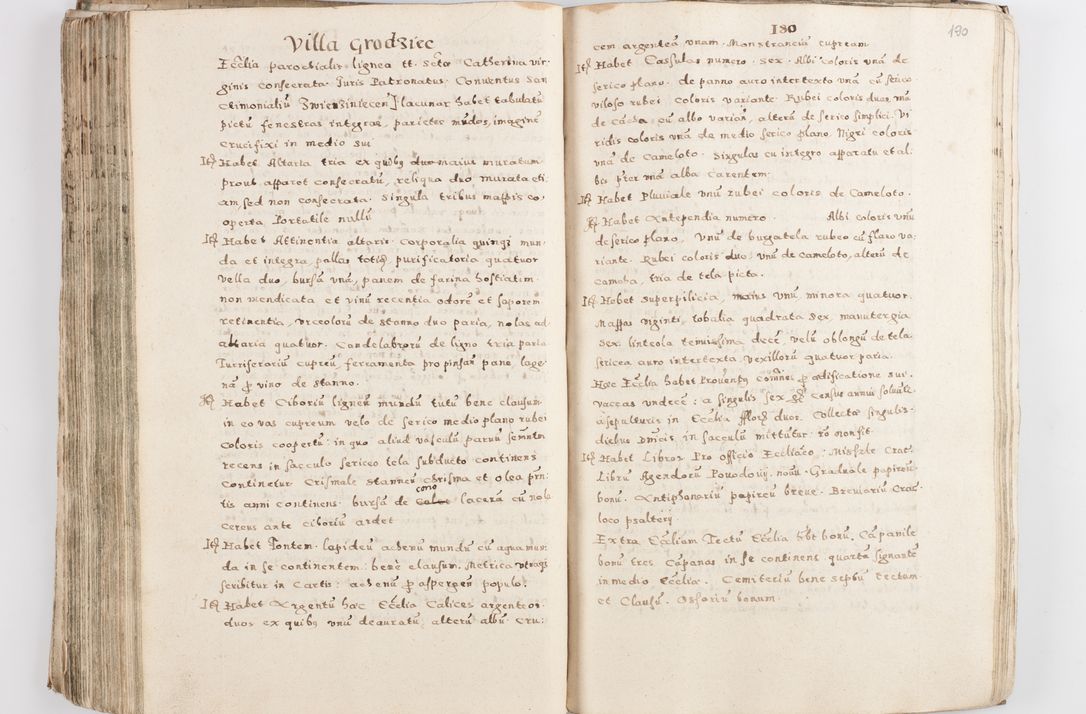 Villa Grodziec
Ecclia parochialis lignea tt. scto Catherina vir
ginis consecrata. Juris Patronatus. Conventus San
ctimonialiū Zwierziniecen lacunar habet tabulatū
pictū fenestras integras, parietes mūdos, imaginē
crucifixi in medio sui
Itē Habet Altaria tria ex quibꝫ maius muratum
prout apparet consecratū, reliqua duo murata eti,
am sed non consecrata. Singula tribus mappis co,
operta Portatile nullū
Itē Habet Attinentia altaris. Corporalia quinqꝫ mun,
da et integra, pallas totidē, purificatoria quatuor
vella duo, bursā unā, panem de farina hostiatim
non mendicata et vinū recentia odorē et saporem
retinentia, urceolorū de stanno duo paria, nolas ad
altaria quatuor. Candelabrorū de ligno tria paria
Turriferariū cupreū, ferramenta pro pane, lage
nā p vino de stanno.
Itē Habet Ciborium ligneū mundū tutū bene clausum
in eo vas cupreum velo de serico medio plano rubei
coloris coopertū: in quo aliud vasculū parvū
recens in sacculo sericeo tela subducto continens
Continetur Crismale stanneū Chrisma et olea prn
tis anni continens bursā de corio lacerā cū nola
Cereus ante ciboriū ardet
Itē Habet Fontem. lapideū ahenū mundū cū aqua mun,
da in se continentem: benè clausum. Metrica utraqꝫ
scribitur in Cartis: ahenū p aspergen populo.
Itē Habet Argentū haec Ecclia Calices argenteos
duos ex quibꝫ unū deauratū, alterū albū. Cru:
180
190
cem argenteā unam. Monstranciā cupream
Itē Habet Cassulas numero. sex. Albi coloris unā de
serico plano. de panno auro intertexto unā cū serico
viloso rubei coloris variante. Rubei coloris duas, unā
de cū albo variā, alterā de serico simplici. Vi
ridis coloris unā de medio serico plano. Nigri coloris
unā de Cameloto. Singulas cū integro apparatu et al,
bis pter unā alba carentem.
Itē Habet Pluviale unū rubei coloris de Cameloto.
Itē Habet Antependia numero. Albi coloris unū
de serico plano, Unū de bugatela rubeo cū flavo va,
riante. Rubei coloris duo, unū de cameloto, alterū de
camcha, tria de tela picta.
Itē Habet superpilicia, maius unū minora quatuor.
Mappas viginti, tobalia quadrata sex, manutergia
sex, linteola tenuissima decē, velū oblongū de tela
sericea auro intertexta, vexillorū quatuor paria.
Haec Ecclia habet Provenꝫ p aedificatione sui.
vaccas undecē: a singulis sex census annui solvūt.
a sepulturis in Ecclia duos. Collecta singulis.
diebus Dnicis in sacculū mittūtur: non fit.
Itē Habet Libros Pro officio Ecclico: Missale Crac.
Librū Agendorū Povodovij. novū. Graduale papireū
bonū. Antiphonariū papireū breve. Breviariū Crac.
loco psalterij
Extra Eccliam Tectū Ecclia hbt bonū, Cāpanile
bonū tres Cāpanas in se continens quartā signantē
in medio Eccliae. Cemiteriū bene septū tectum
et Clausū. Ossoriū bonum.